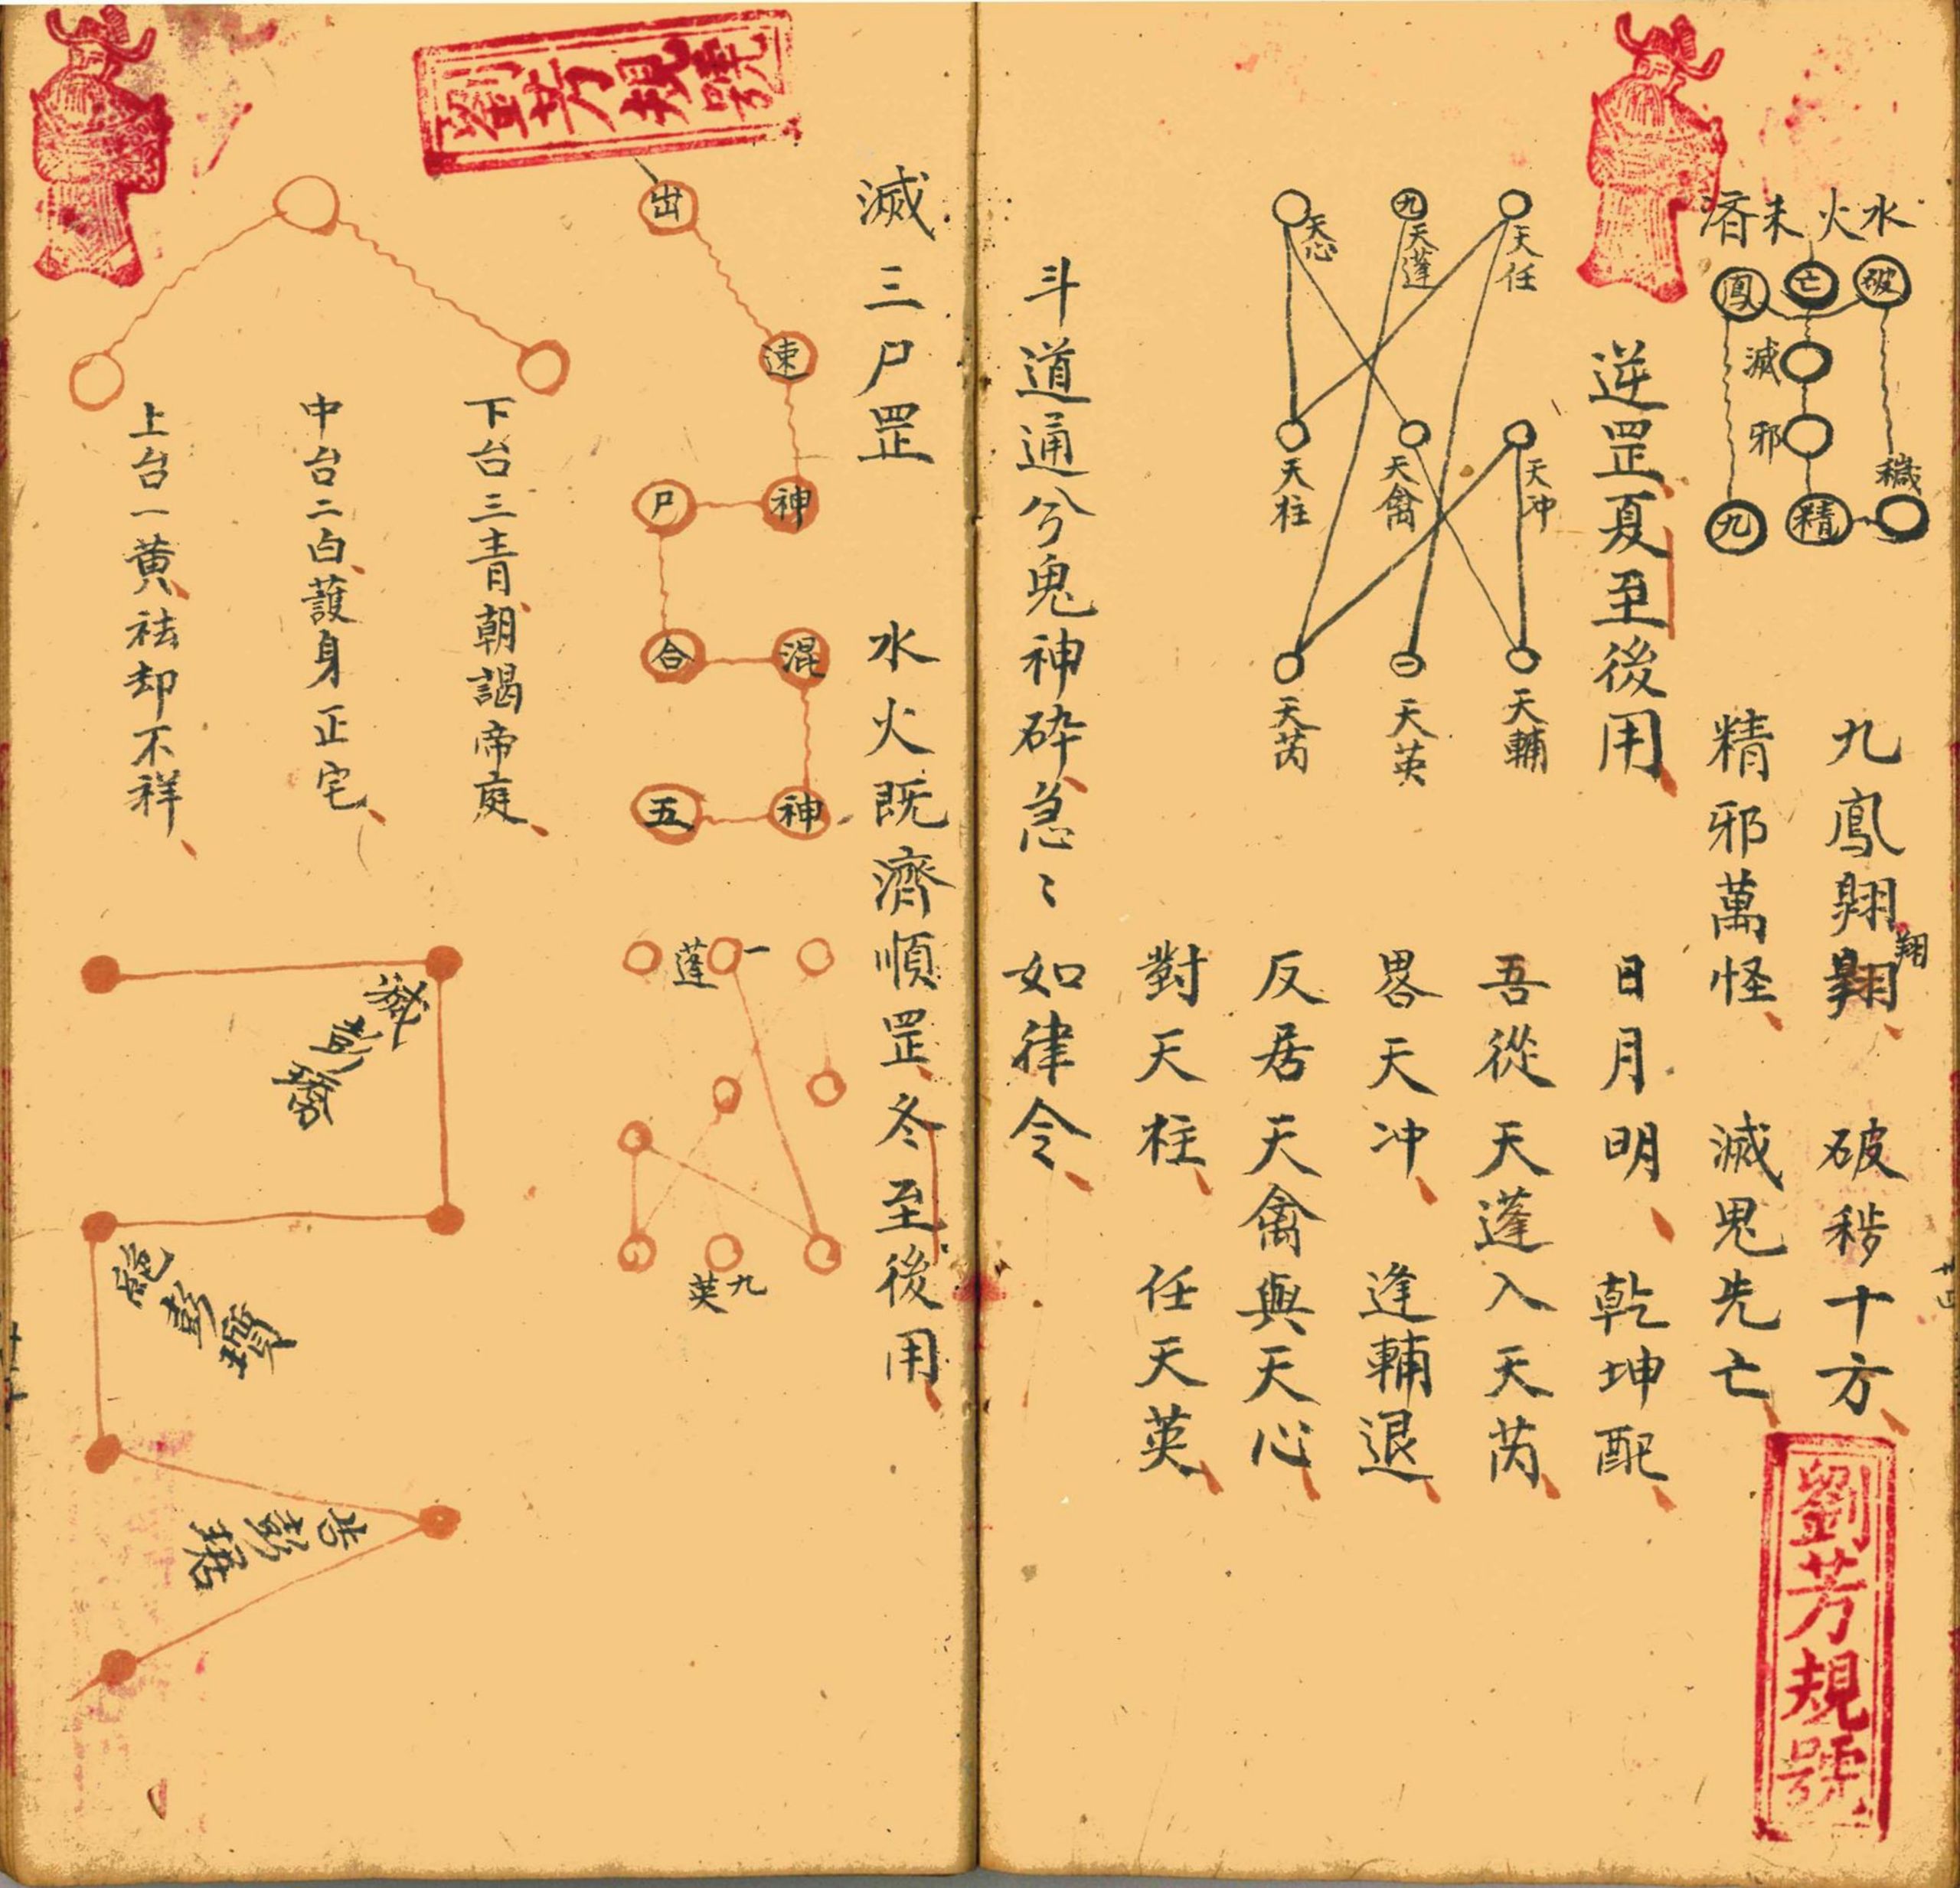 水火未済
破
亡
鳳
滅
邪
穢
精
九
九鳳翱翔
翔
破秽十方
精邪萬怪
滅鬼先亡
逆罡夏至後用
日月明
乾坤配
天任
九
天蓬
天心
天冲
天禽
天柱
天輔
一
天英
天芮
吾從天蓬入天芮
畧天冲
逢輔退
反居天禽與天心
對天柱
任天英
斗道通兮鬼神砕急〻如律令
劉芳規號
劉芳規號
滅三尸罡
水火既濟順罡冬至後用
出
速
神
尸
合
混
神
五
一
蓬
九
英
下台三青朝謁帝庭
中台二白護身正宅
上台一黄祛却不祥
彭
彭
彭琚